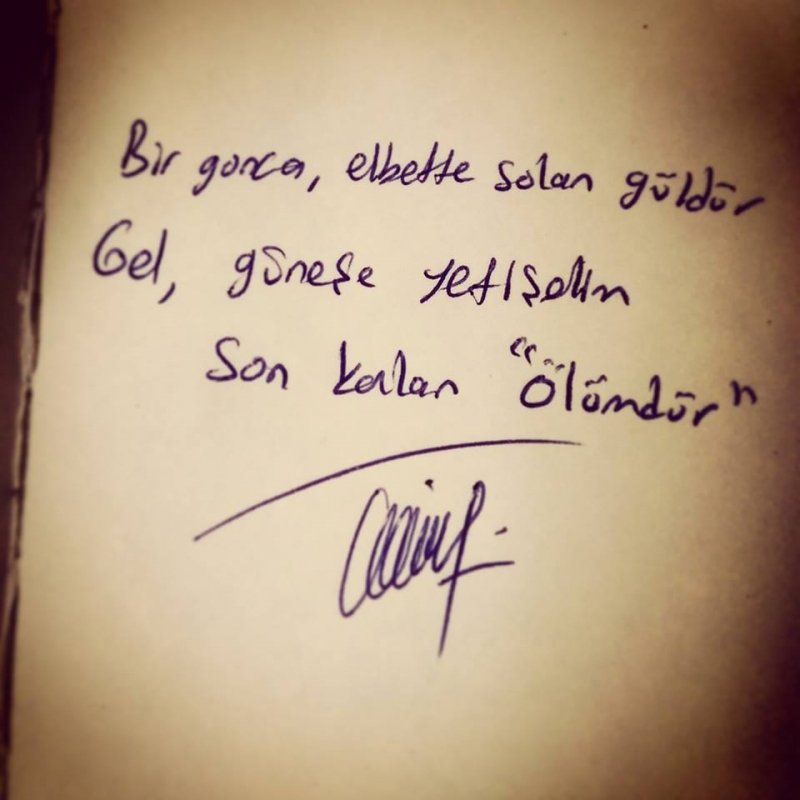 Bir gonca, elbette solan güldür
Gel, güneşe yetişelim
Son kalan "Ölümdür"